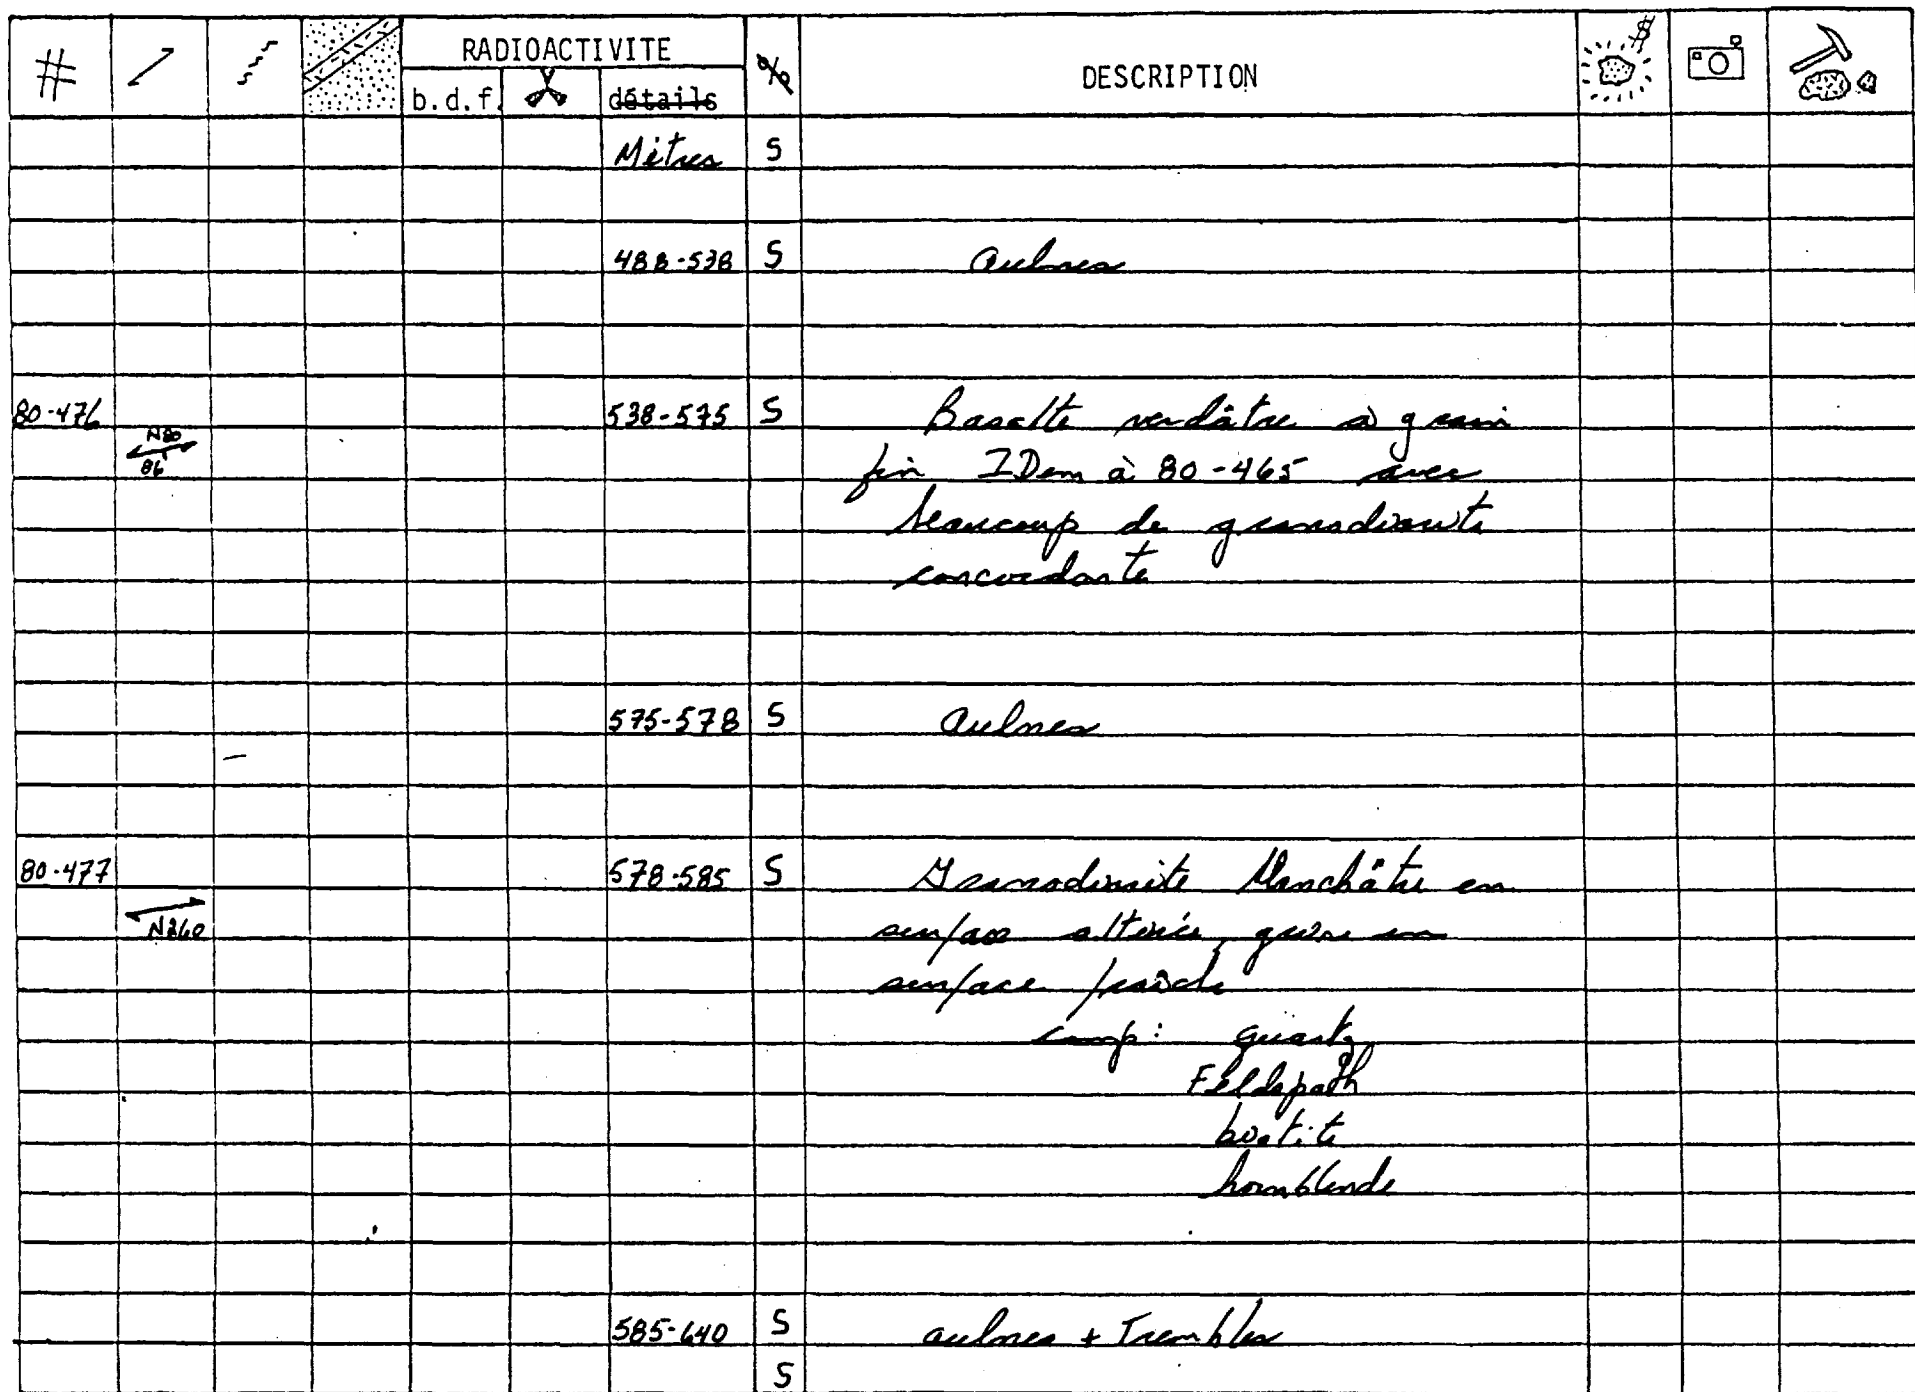 # RADIOACTIVITE % DESCRIPTION $
b.d.f. détails
Mètres S
488-538 S aulnes
80-476 538-575 S Basalte verdâtre à grain
N80
86 fin IDem à 80-465 avec
beaucoup de granodiorite
concordante
575-578 S aulnes
80-477 578-585 S Granodiorite blanchâtre en
N260 surface altérée, grise en
surface fraîche
comp: quartz
Feldspath
biotite
hornblende
585-640 S aulnes + Trembles
S